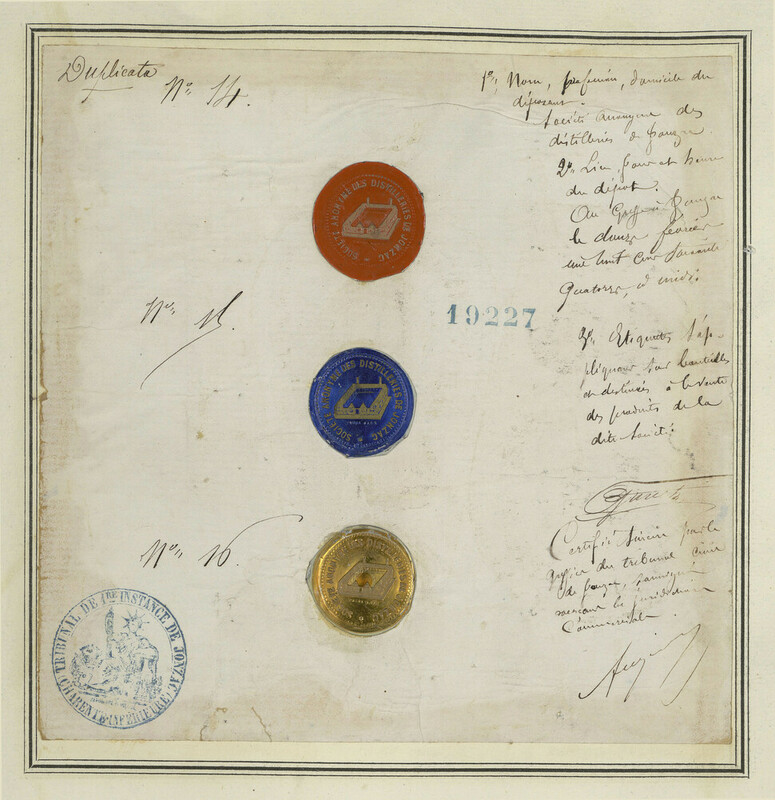 Duplicata
No. 14.
1o, Nom, profession, domicile du
déposant.
Société anonyme des
distilleries de Jonzac.
2o Lieu, jour et heure
du dépôt.
Au Greffe à Jonzac
le douze février
mil huit cent soixante
quatorze, à midi.
SOCIÉTÉ ANONYME DES DISTILLERIES DE JONZAC
No. 15.
19227
3o, Etiquettes s'ap-
pliquant sur bouteilles
et destinées à la vente
des produits de la
dite Société.
SOCIÉTÉ ANONYME DES DISTILLERIES DE JONZAC
No. 16
SOCIÉTÉ ANONYME DES DISTILLERIES DE JONZAC
Certifié sincère par le
greffier du tribunal civil
de Jonzac,
exerçant la juridiction
Commerciale.
TRIBUNAL DE 1RE INSTANCE DE JONZAC
CHARENTE-INFÉRIEURE